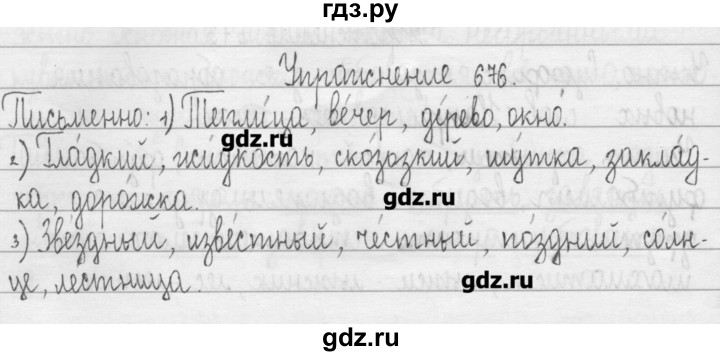 гдз.ру
Упражнение 676.
Письменно: 1) Теплица, ве́чер, де́рево, окно́.
gdz.ru
2) Гла́дкий, жи́дкость, ско́льзкий, шу́тка, закла́д-
ка, доро́жка.
gdz.ru
3) Звёздный, изве́стный, че́стный, по́здний, со́лн-
це, лестница.
gdz.ru
gdz.ru
gdz.ru